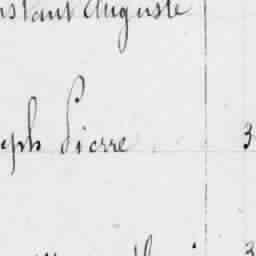 nstant Auguste
eph Pierre 3
3